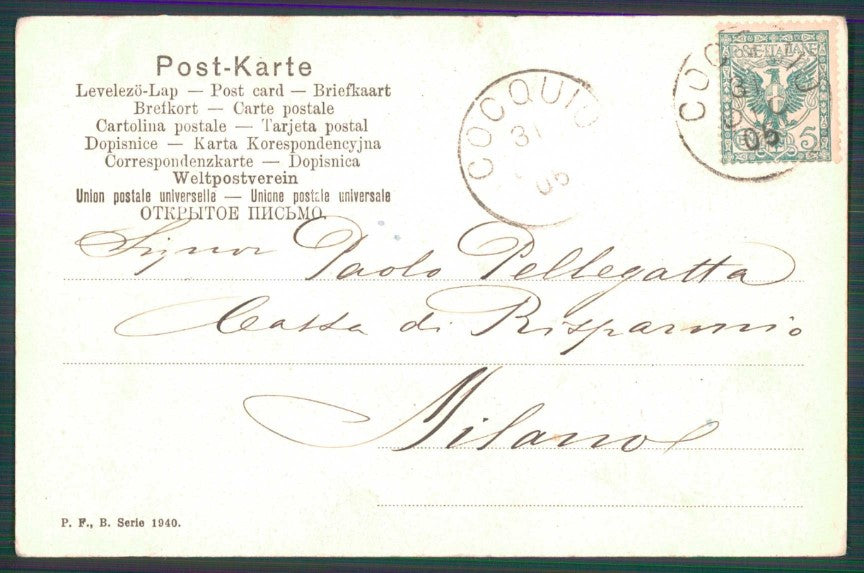 Post-Karte
Levelezö-Lap — Post card — Briefkaart
Brefkort — Carte postale
Cartolina postale — Tarjeta postal
Dopisnice — Karta Korespondencyjna
Correspondenzkarte — Dopisnica
Weltpostverein
Union postale universelle — Unione postale universale
ОТКРЫТОЕ ПИСЬМО.
COCQUIO
31
05
COCQUIO
05
POSTE ITALIANE
5
Signor Paolo Pellegatta
Cassa di Risparmio
Milano
P. F., B. Serie 1940.